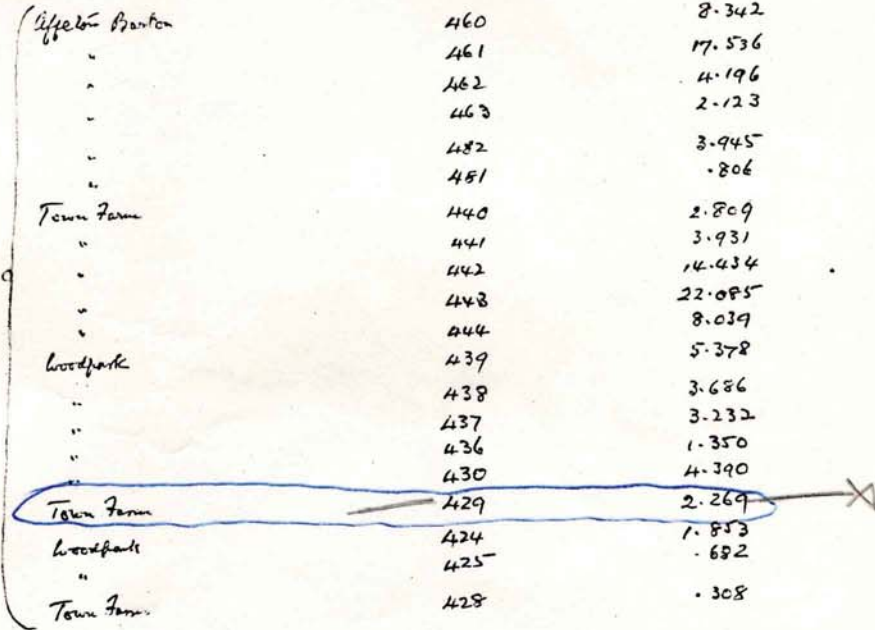 Affeton Barton 460 8.342
" 461 17.536
" 462 4.196
" 463 2.123
" 482 3.945
" 481 .806
Town Farm 440 2.809
" 441 3.931
" 442 14.434
" 443 22.085
" 444 8.039
Woodpark 439 5.378
" 438 3.686
" 437 3.232
" 436 1.350
" 430 4.390
Town Farm 429 2.269
Woodpark 424 1.853
" 425 .682
Town Farm. 428 .308